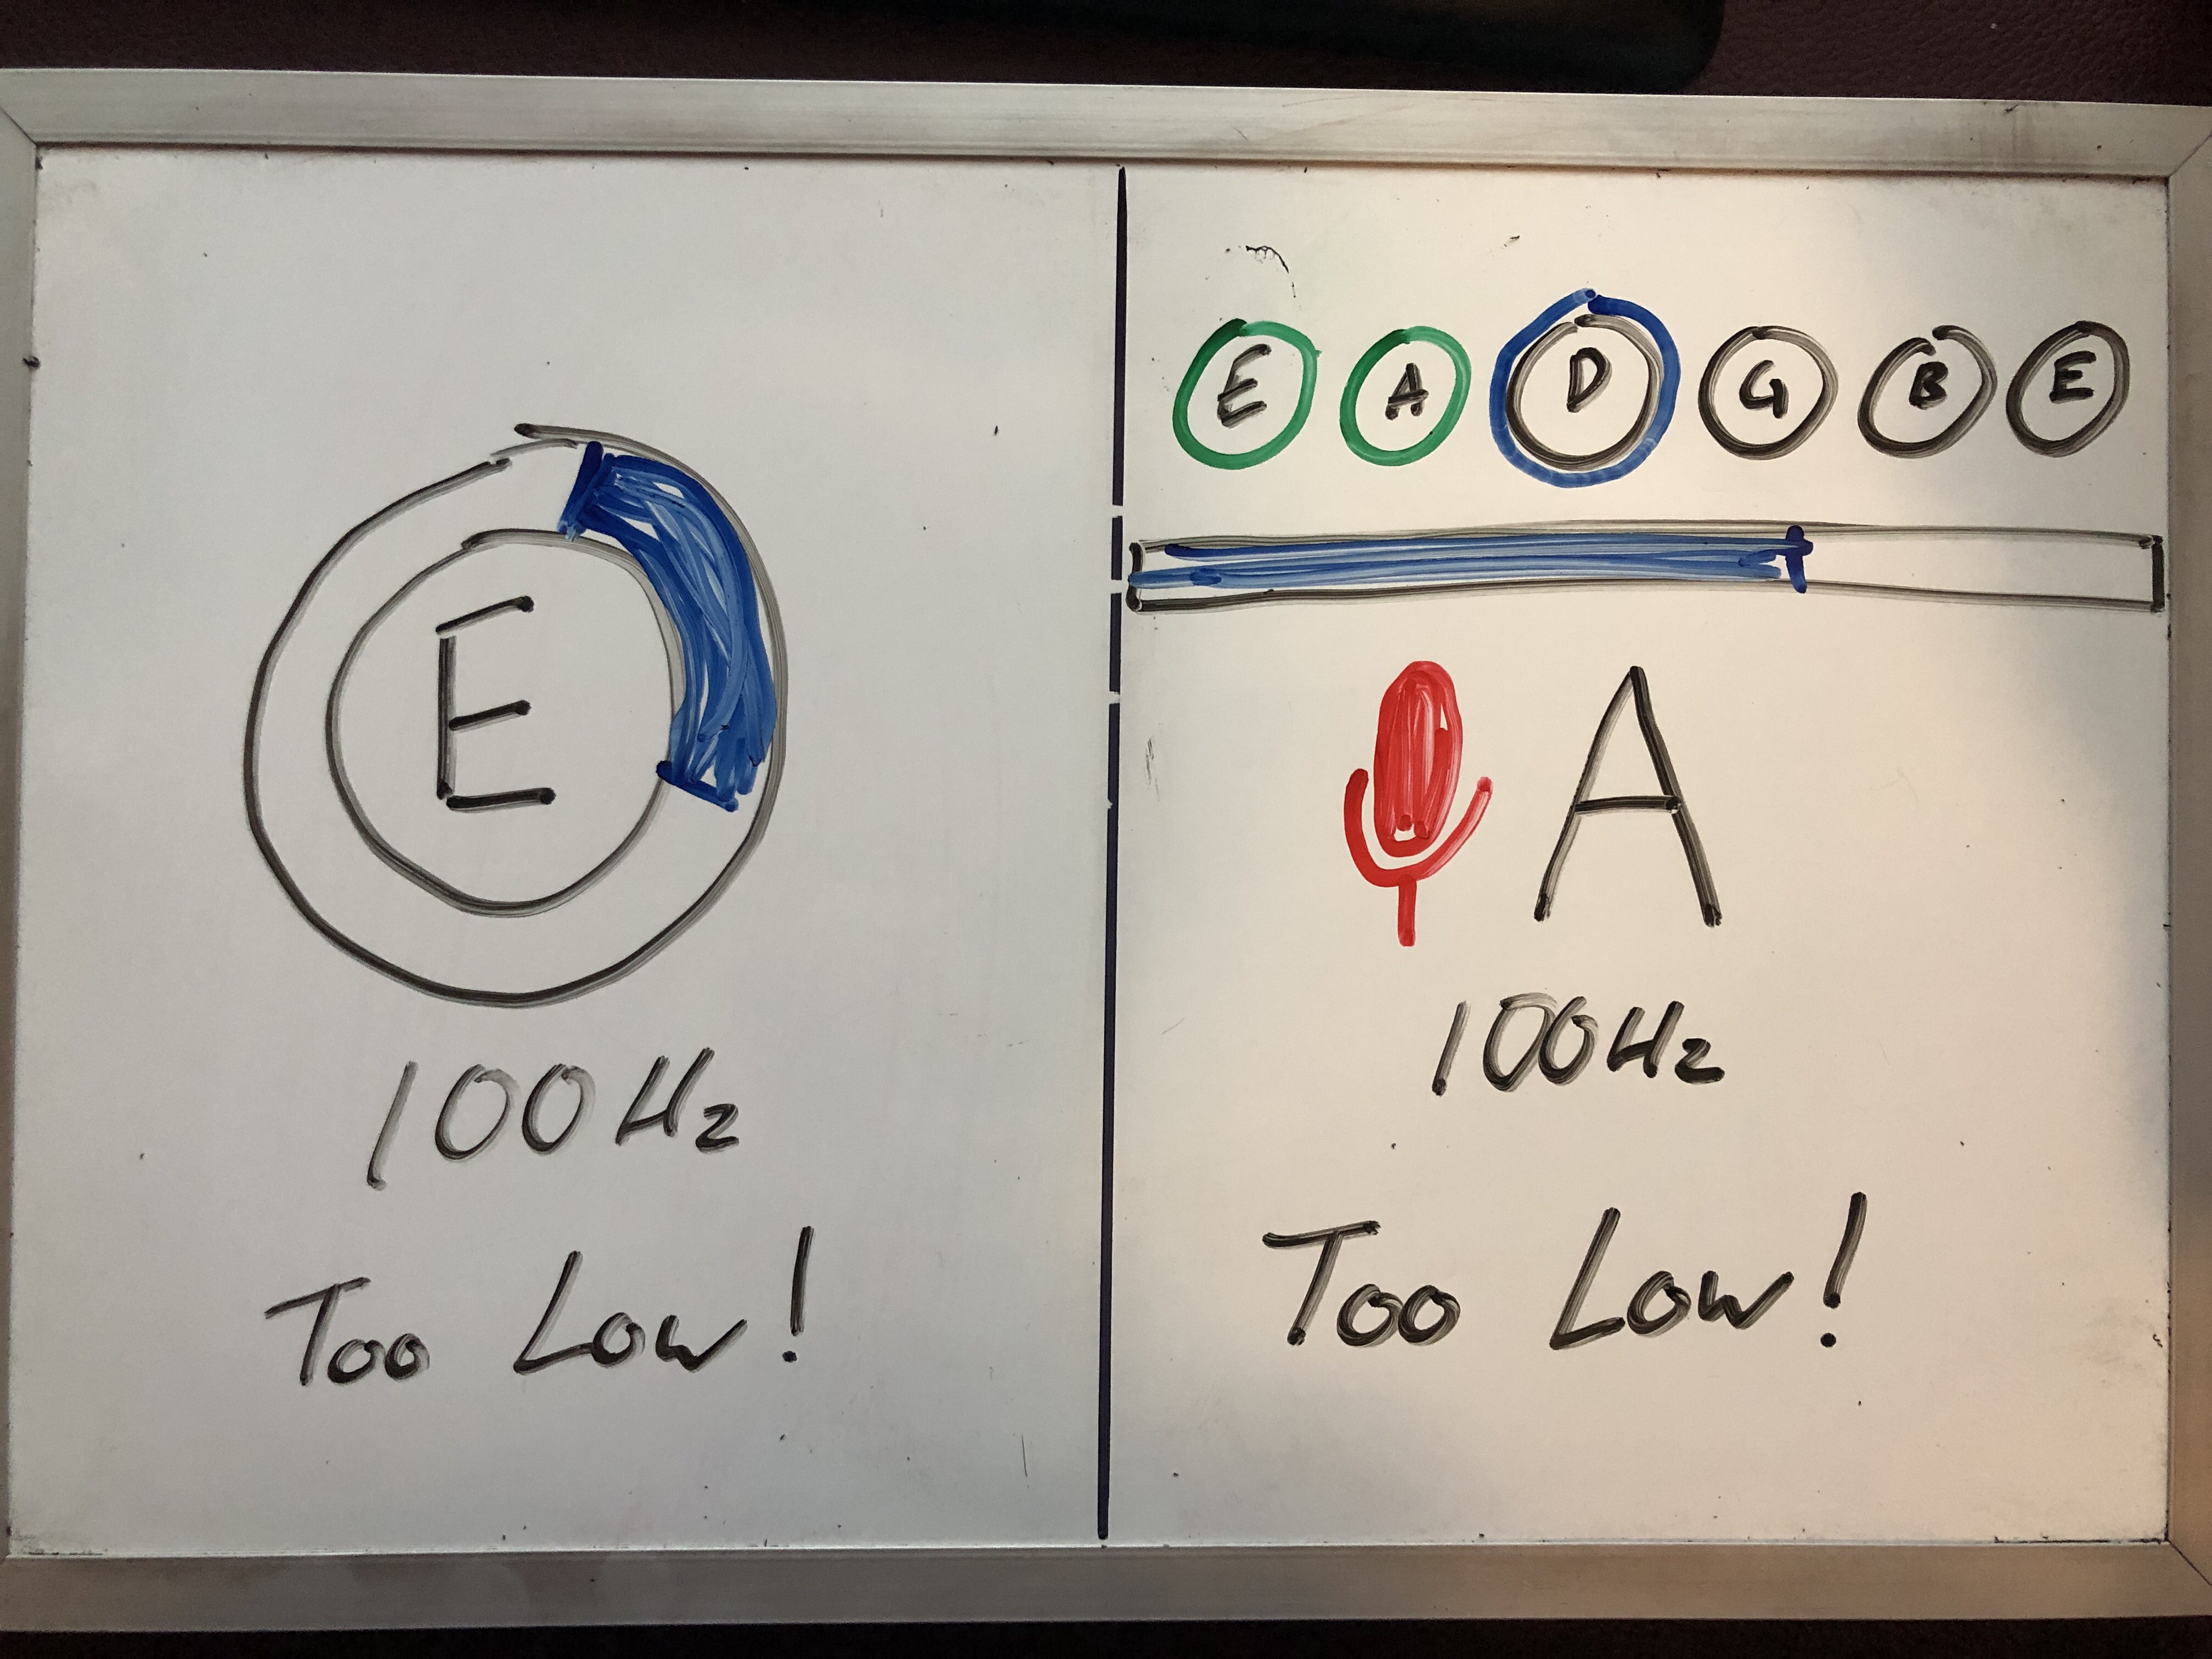 E
100Hz
Too Low!
E A D G B E
A
100Hz
Too Low!